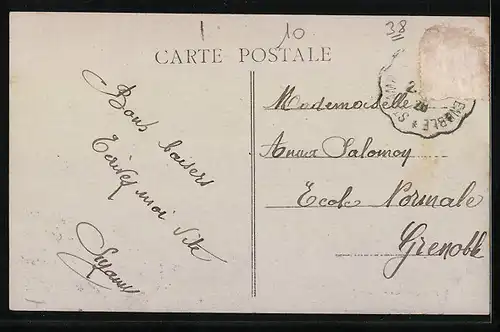 10
38
CARTE POSTALE
Bons baisers
Ecrivez moi vite
Suzanne
Mademoiselle
Salomoy
Ecole Normale
Grenoble
ENOBLE * S